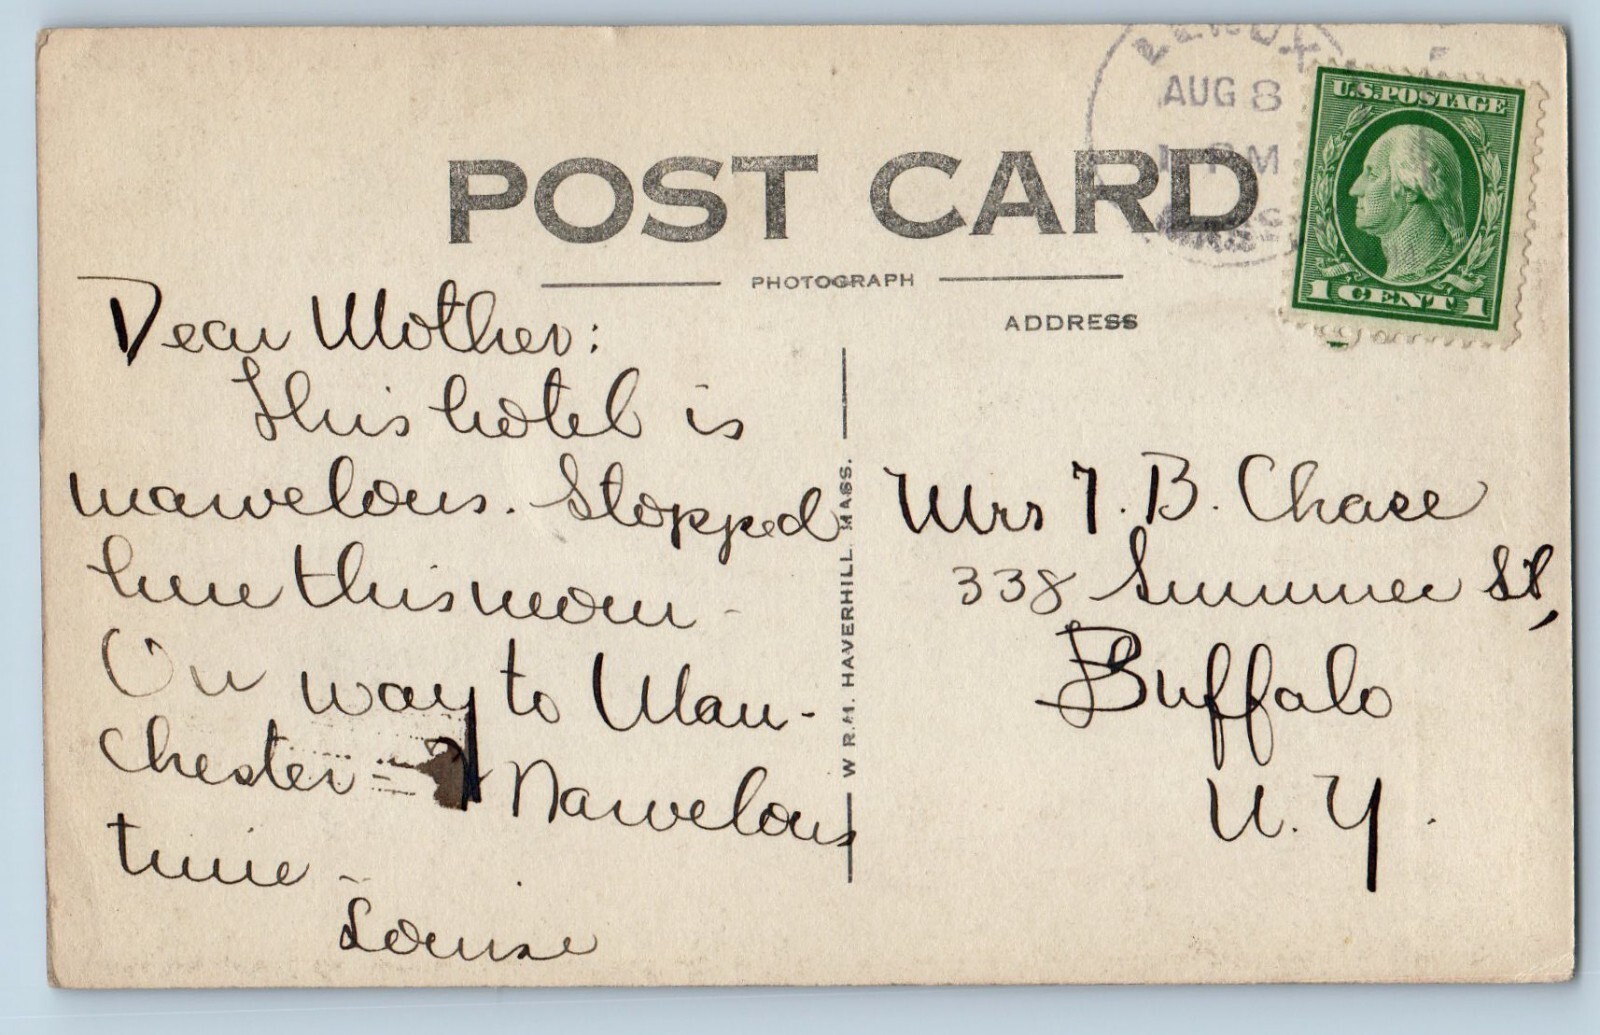 LENOX
AUG 8
PM
MASS
U.S. POSTAGE
1 CENT 1
POST CARD
PHOTOGRAPH
ADDRESS
Dear Mother:
This hotel is
marvelous. Stopped
here this morn -
On way to Man-
chester - Marvelous
time -
Louise
W.R.M. HAVERHILL. MASS.
Mrs T. B. Chase
338 Summer St,
Buffalo
N. Y.